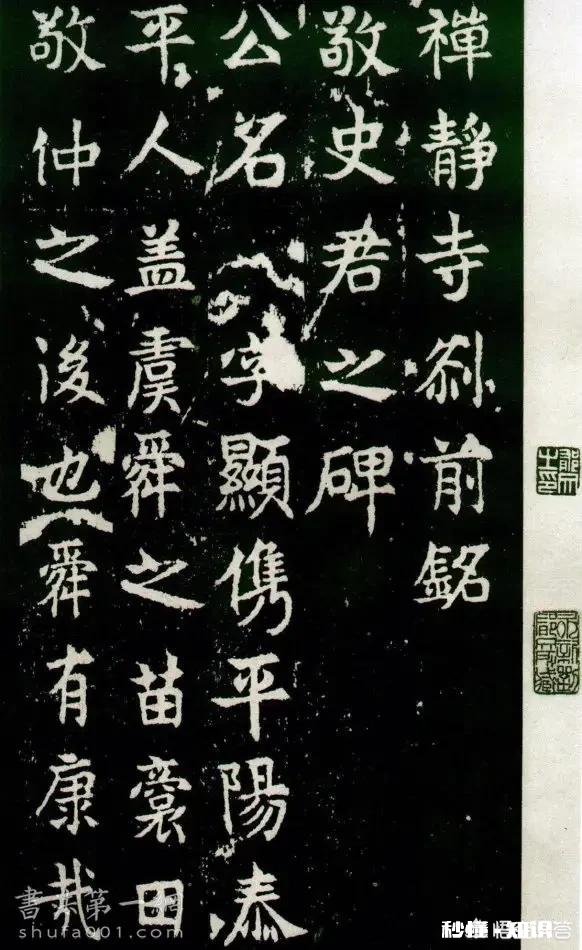 禪靜寺刹前銘
敬史君之碑
公名字顯儁平陽泰
平人盖虞舜之苗裔田
敬仲之後也舜有康哉
書法第一網
shufa001.com
秒懂